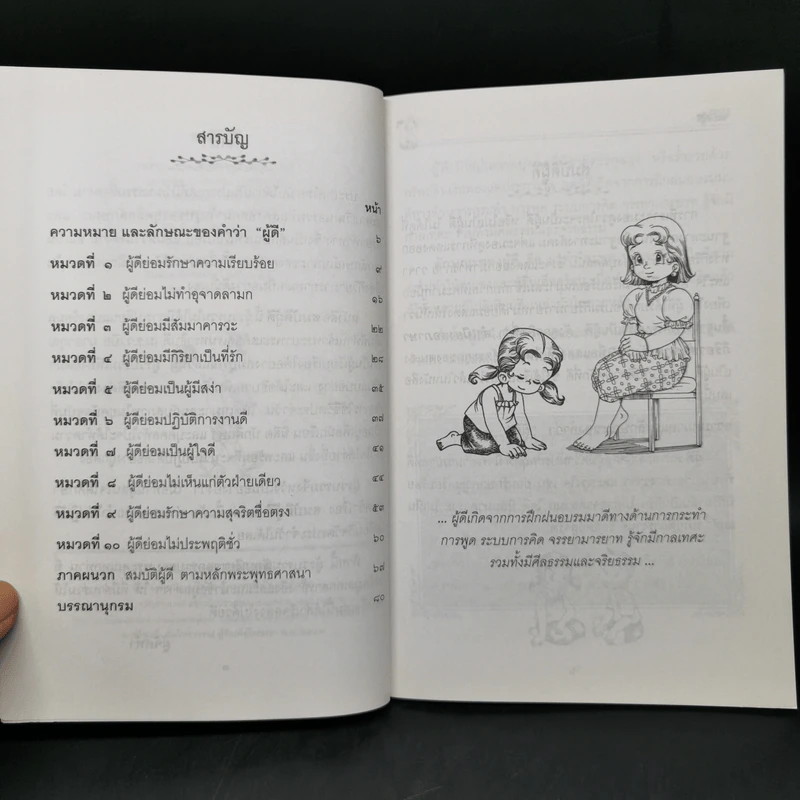 สารบัญ
หน้า
ความหมาย และลักษณะของคำว่า "ผู้ดี" ๖
หมวดที่ ๑ ผู้ดีย่อมรักษาความเรียบร้อย ๙
หมวดที่ ๒ ผู้ดีย่อมไม่ทำอุจาดลามก ๑๖
หมวดที่ ๓ ผู้ดีย่อมมีสัมมาคารวะ ๒๒
หมวดที่ ๔ ผู้ดีย่อมมีกิริยาเป็นที่รัก ๒๘
หมวดที่ ๕ ผู้ดีย่อมเป็นผู้มีสง่า ๓๕
หมวดที่ ๖ ผู้ดีย่อมปฏิบัติการงานดี ๓๗
หมวดที่ ๗ ผู้ดีย่อมเป็นผู้ใจดี ๔๑
หมวดที่ ๘ ผู้ดีย่อมไม่เห็นแก่ตัวฝ่ายเดียว ๔๔
หมวดที่ ๙ ผู้ดีย่อมรักษาความสุจริตซื่อตรง ๕๓
หมวดที่ ๑๐ ผู้ดีย่อมไม่ประพฤติชั่ว ๖๐
ภาคผนวก สมบัติผู้ดี ตามหลักพระพุทธศาสนา ๖๗
บรรณานุกรม ๘๐
... ผู้ดีเกิดจากการฝึกฝนอบรมมาดีทางด้านการกระทำ
การพูด ระบบการคิด จรรยามารยาท รู้จักมีกาลเทศะ
รวมทั้งมีศีลธรรมและจริยธรรม ...